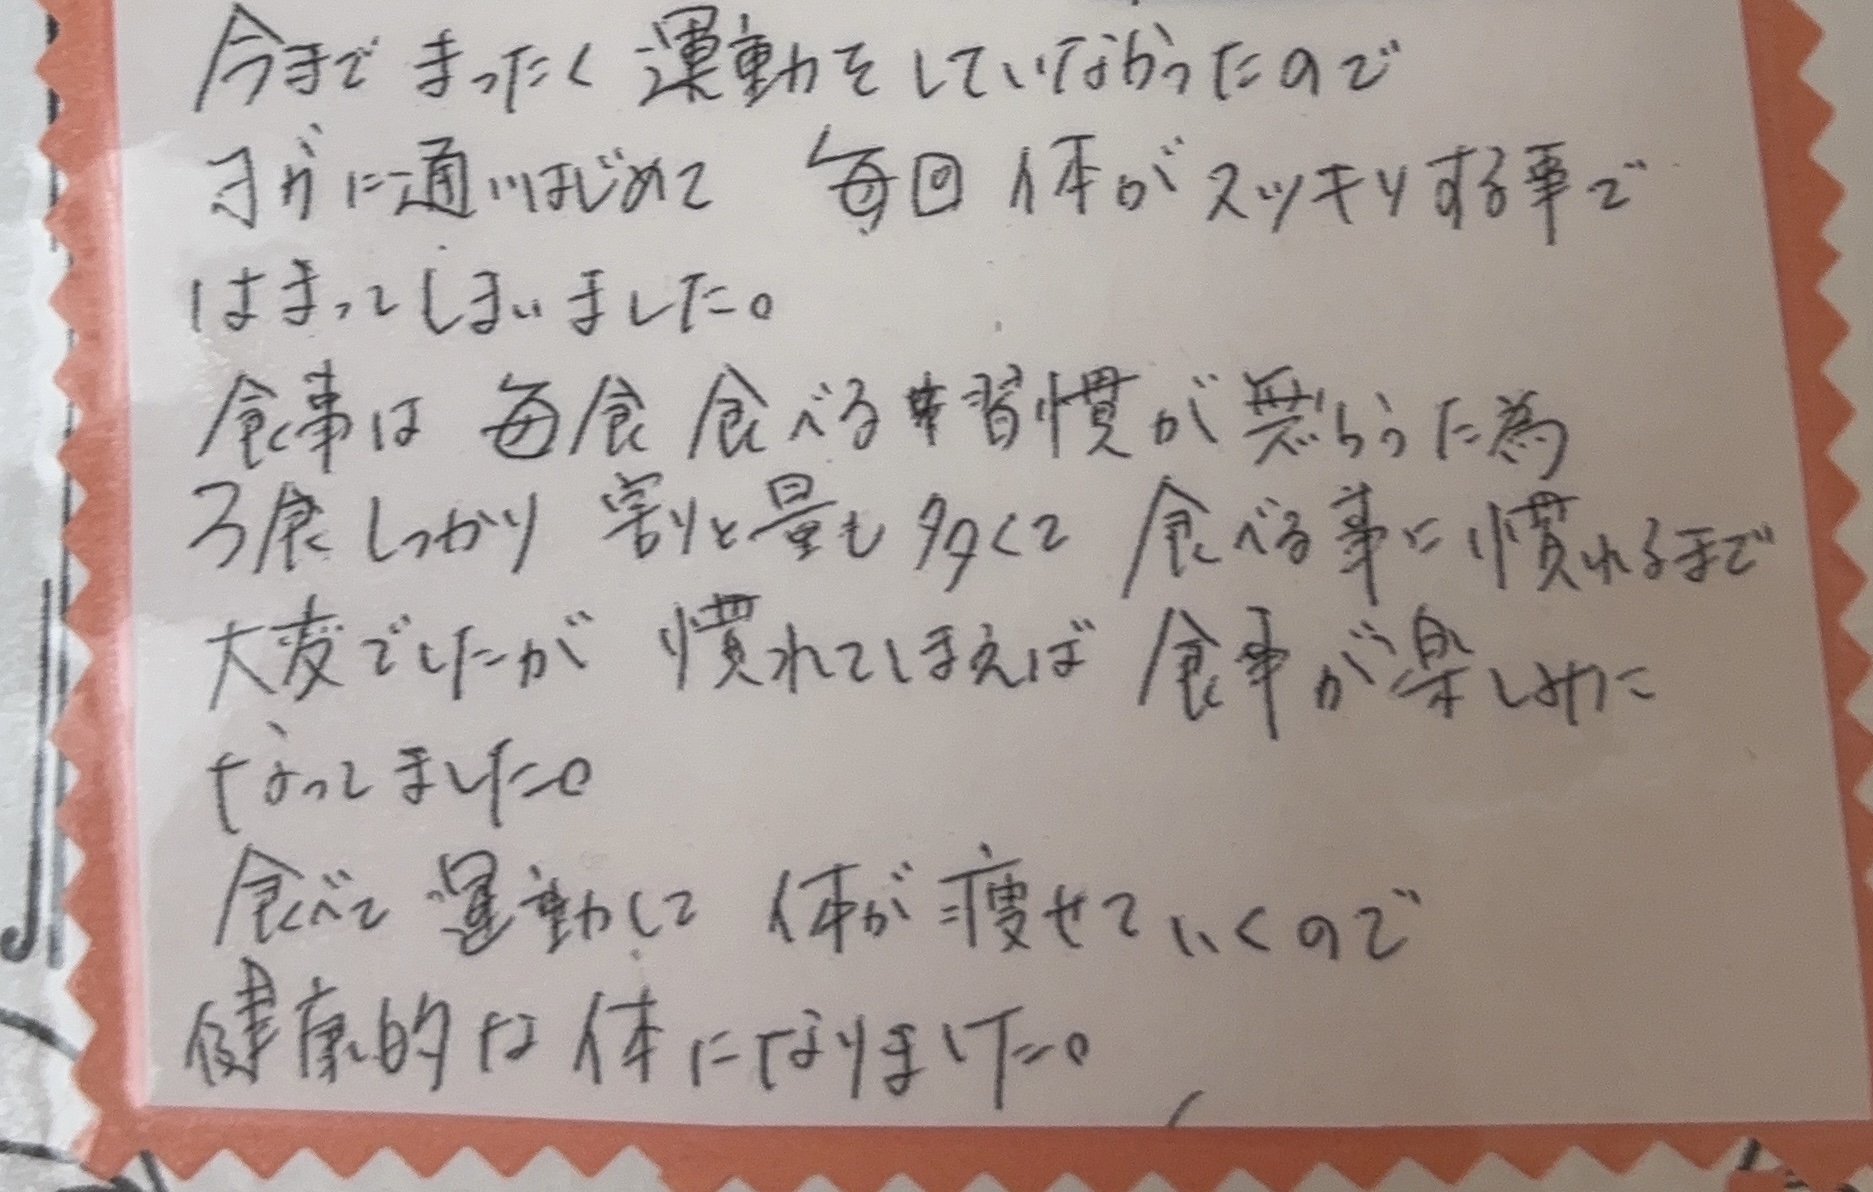 今まで まったく 運動をしていなかったので
ヨガに通いはじめて 毎回 体がスッキリする事で
はまってしまいました。
食事は 毎食 食べる習慣が無かった為
3食しっかり 割と量も多くて 食べる事に慣れるまで
大変でしたが 慣れてしまえば 食事が楽しみに
なってました。
食べて 運動して 体が痩せていくので
健康的な体になりました。